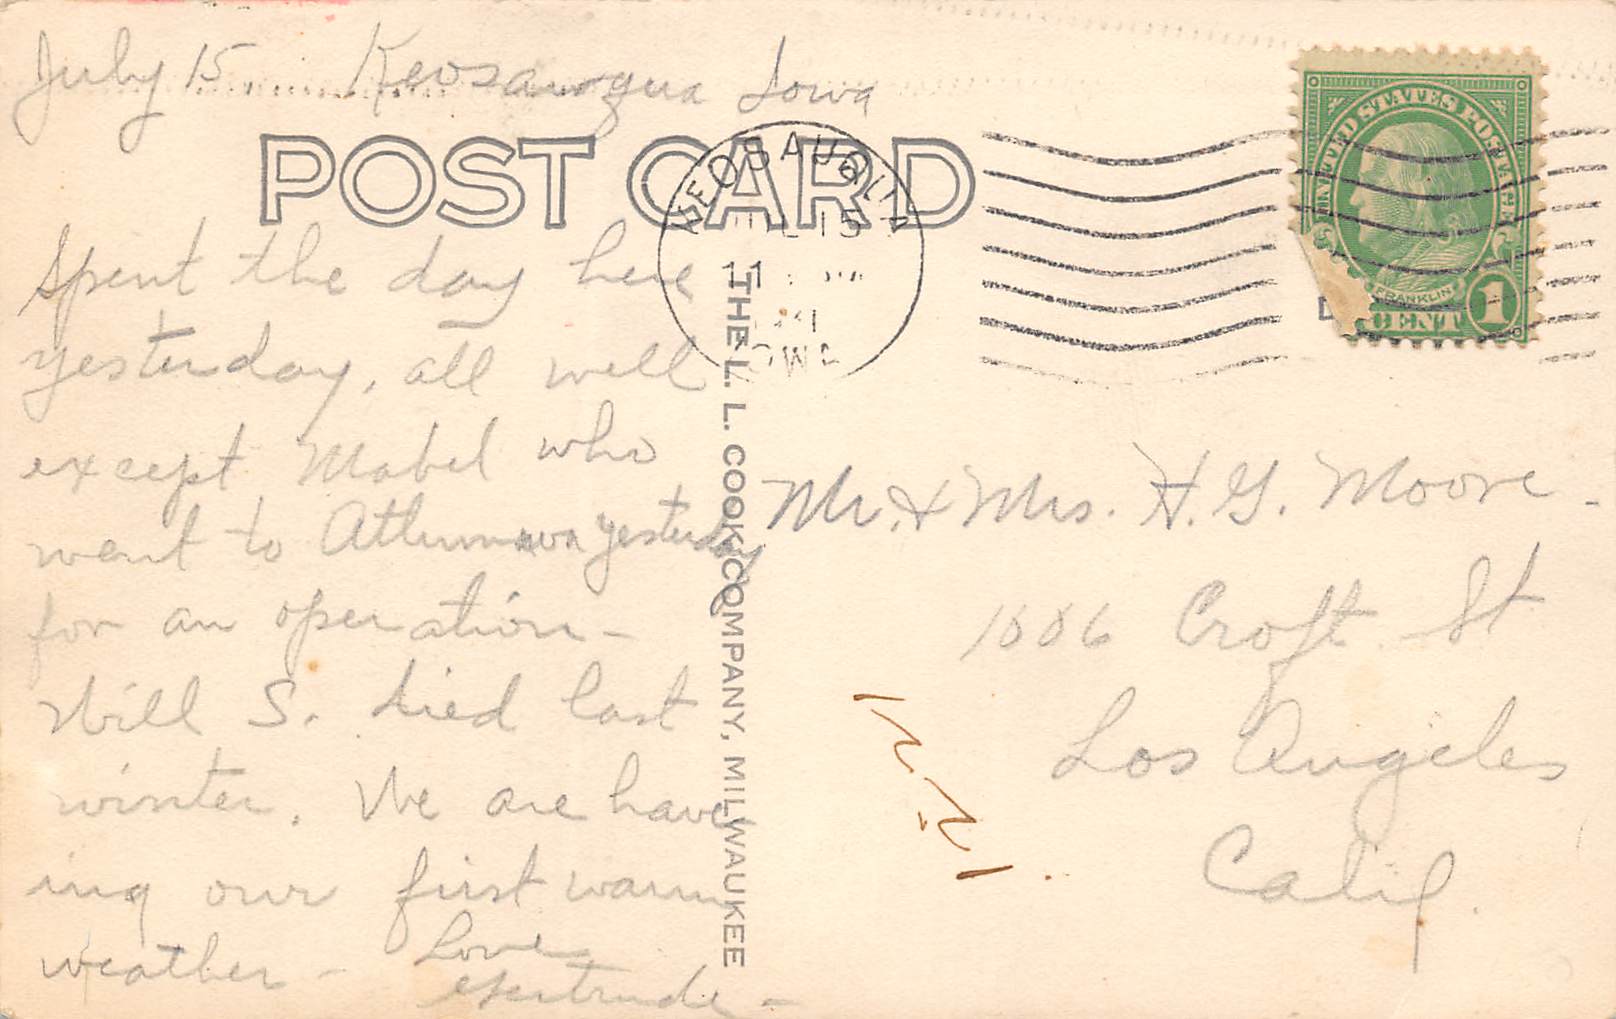 July 15 Keosauqua Iowa
POST CARD
KEOSAUQUA
15
11
IOWA
UNITED STATES POSTAGE
FRANKLIN
1 CENT
Spent the day here
yesterday, all well
except Mabel who
went to Attumwa yesterday
for an operation -
Will S. died last
winter. We are have
ing our first warm
weather - Love
Gertrude -
THE L. L. COOK COMPANY, MILWAUKEE
Mr. & Mrs. H. G. Moore -
Croft St
Los Angeles
Calif.